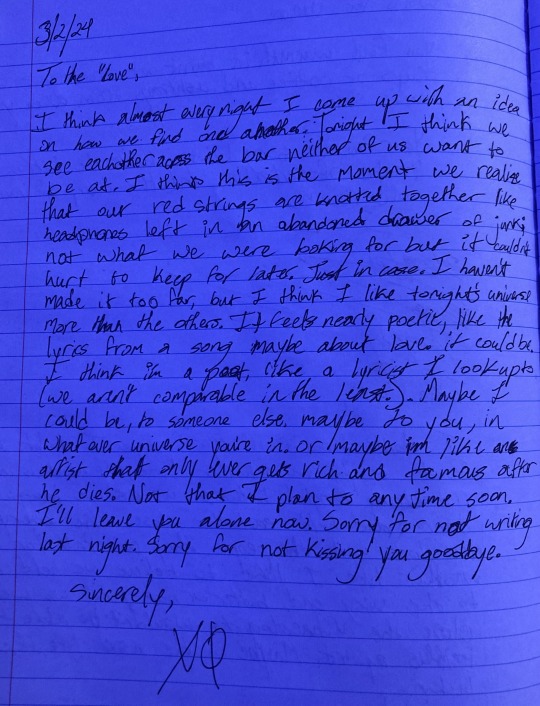 3/2/24
To the "Love",
I think almost every night I come up with an idea
on how we find one another. Tonight I think we
see eachother across the bar neither of us want to
be at. I think this is the moment we realize
that our red strings are knotted together like
headphones left in an abandoned drawer of junk;
not what we were looking for but it couldn't
hurt to keep for later. Just in case. I haven't
made it too far, but I think I like tonight's universe
more than the others. It feels nearly poetic, like the
lyrics from a song maybe about love. it could be.
I think im a poet, like a lyricist I look up to
(we aren't comparable in the least.). Maybe I
could be, to someone else. maybe to you, in
whatever universe you're in. or maybe im like
artist that only ever gets rich and famous after
he dies. Not that I plan to any time soon.
I'll leave you alone now. Sorry for not writing
last night. Sorry for not kissing you goodbye.
Sincerely,